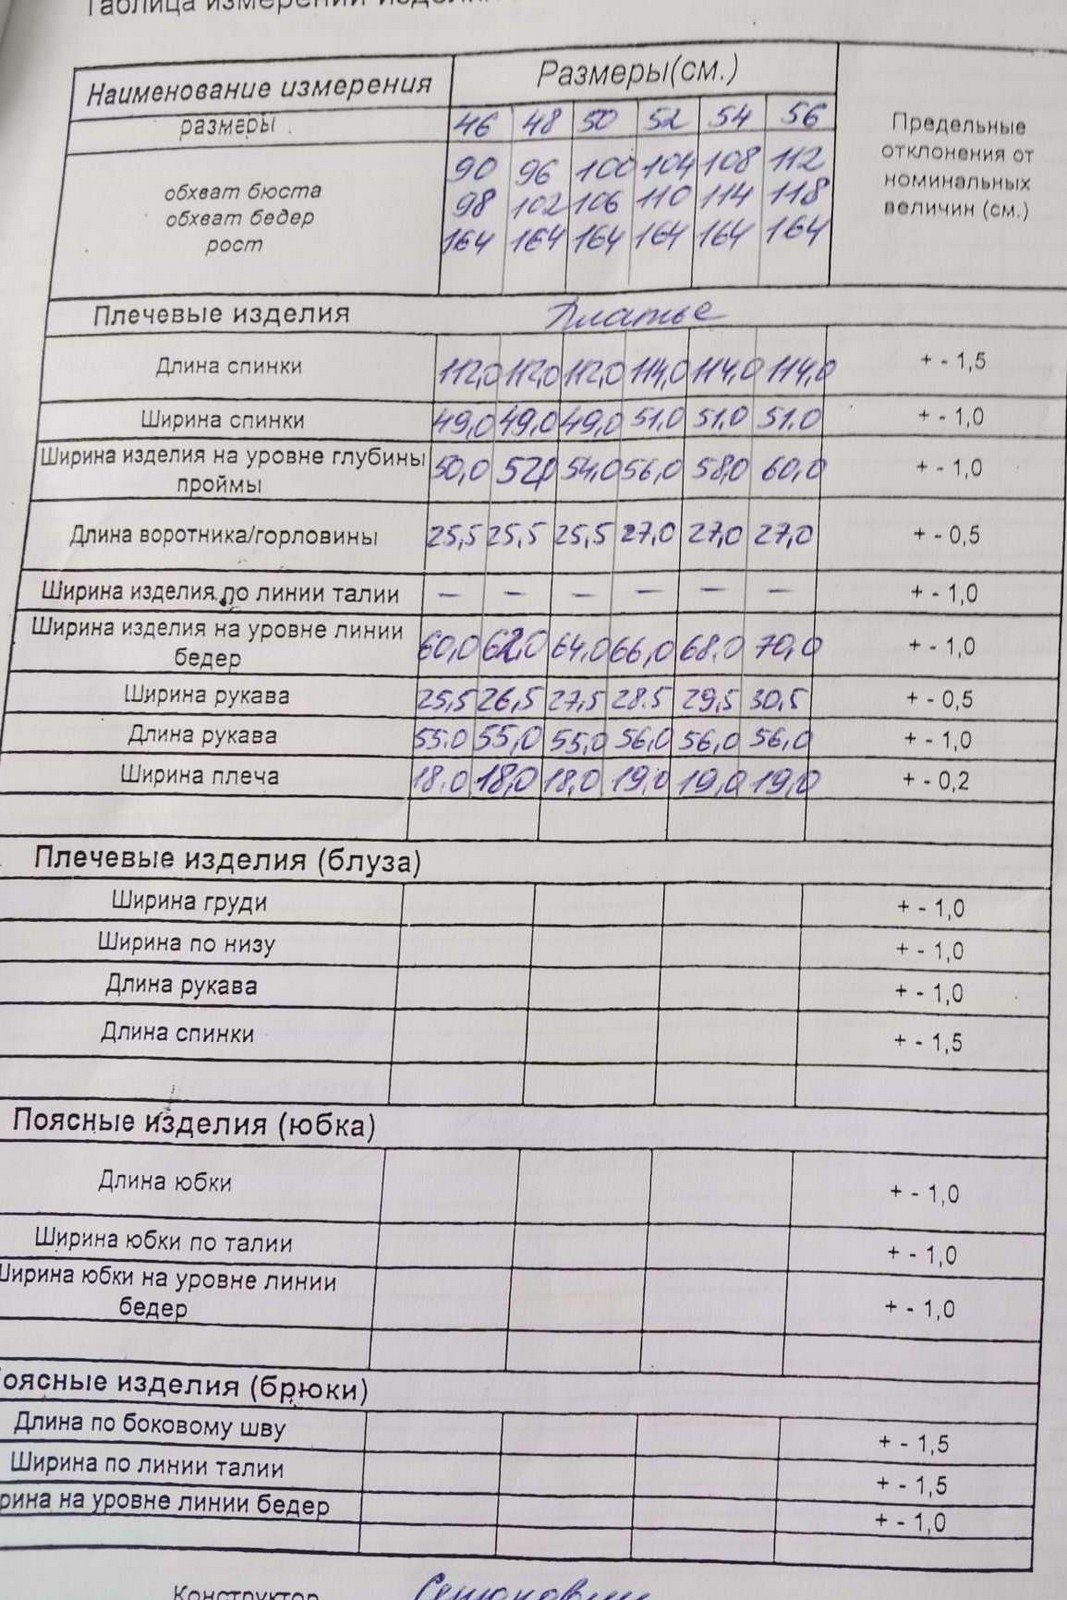 Таблица измерений
Наименование измерения Размеры(см.) Предельные отклонения от номинальных величин (см.)
размеры 46 48 50 52 54 56
обхват бюста 90 96 100 104 108 112
обхват бедер 98 102 106 110 114 118
рост 164 164 164 164 164 164
Плечевые изделия Платье
Длина спинки 112,0 112,0 112,0 114,0 114,0 114,0 + - 1,5
Ширина спинки 49,0 49,0 49,0 51,0 51,0 51.0 + - 1,0
Ширина изделия на уровне глубины
проймы 50,0 52,0 54,0 56,0 58,0 60,0 + - 1,0
Длина воротника/горловины 25,5 25,5 25,5 27,0 27,0 27,0 + - 0,5
Ширина изделия по линии талии – – – – – – + - 1,0
Ширина изделия на уровне линии
бедер 60,0 62,0 64,0 66,0 68.0 70,0 + - 1,0
Ширина рукава 25,5 26,5 27,5 28.5 29,5 30,5 + - 0,5
Длина рукава 55.0 55,0 55,0 56,0 56,0 56,0 + - 1,0
Ширина плеча 18.0 18,0 18,0 19,0 19,0 19,0 + - 0,2
Плечевые изделия (блуза)
Ширина груди + - 1,0
Ширина по низу + - 1,0
Длина рукава + - 1,0
Длина спинки + - 1,5
Поясные изделия (юбка)
Длина юбки + - 1,0
Ширина юбки по талии + - 1,0
Ширина юбки на уровне линии
бедер + - 1,0
оясные изделия (брюки)
Длина по боковому шву + - 1,5
Ширина по линии талии + - 1,5
рина на уровне линии бедер + - 1,0
Конструктор